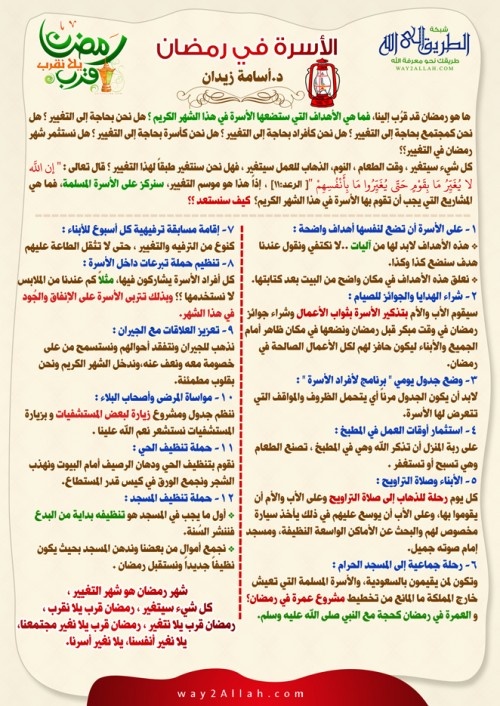 شبكة
الطريق إلى الله
طريقك نحو معرفة الله
WAY2ALLAH.COM
رمضان
قرب
يلا نقرب
الأسرة في رمضان
د.أسامة زيدان
ها هو رمضان قد قرُب إلينا، فما هي الأهداف التي ستضعها الأسرة في هذا الشهر الكريم ؟ هل نحن بحاجة إلى التغيير ؟ هل نحن
كمجتمع بحاجة إلى التغيير ؟ هل نحن كأفراد بحاجة إلى التغيير ؟ هل نحن كأسرة بحاجة إلى التغيير ؟ هل نستثمر شهر
رمضان في التغيير؟؟
كل شيء سيتغير ، وقت الطعام ، النوم، الذهاب للعمل سيتغير ، فهل نحن سنتغير طبقاً لهذا التغيير ؟ قال تعالى : " إن الله
لا يُغَيِّرُ مَا بِقَوْمٍ حَتَّى يُغَيِّرُوا مَا بِأَنْفُسِهِمْ "[ الرعد:١١] ، إذاً هذا هو موسم التغيير، سنركز على الأسرة المسلمة، فما هي
المشاريع التي يجب أن تقوم بها الأسرة في هذا الشهر الكريم؟ كيف سنستعد ؟؟
١- على الأسرة أن تضع لنفسها أهداف واضحة :
هذه الأهداف لابد لها من آليات ..لا نكتفي ونقول عندنا
هدف سنضع كذا وكذا.
نعلق هذه الأهداف في مكان واضح من البيت بعد كتابتها.
٢- شراء الهدايا والجوائز للصيام :
سيقوم الأب والأم بتذكير الأسرة بثواب الأعمال وشراء جوائز
رمضان في وقت مبكر قبل رمضان ونضعها في مكان ظاهر أمام
الجميع والأبناء ليكون حافز لهم لكل الأعمال الصالحة في
رمضان.
٣- وضع جدول يومي " برنامج لأفراد الأسرة " :
لابد أن يكون الجدول مرناً أي يتحمل الظروف والمواقف التي
تتعرض لها الأسرة.
٤- استثمار أوقات العمل في المطبخ :
على ربة المنزل أن تذكر الله وهي في المطبخ ، تصنع الطعام
وهي تسبح أو تستغفر .
٥- الأبناء وصلاة التراويح :
كل يوم رحلة للذهاب إلى صلاة التراويح وعلى الأب والأم أن
يقوموا بها، وعلى الأب أن يوسع عليهم في ذلك يأخذ سيارة
مخصوص لهم والبحث عن الأماكن الواسعة النظيفة، ومسجد
إمام صوته جميل.
٦- رحلة جماعية إلى المسجد الحرام :
وتكون لمن يقيمون بالسعودية، والأسرة المسلمة التي تعيش
خارج المملكة ما المانع من تخطيط مشروع عمرة في رمضان؟
و العمرة في رمضان كحجة مع النبي صلى الله عليه وسلم.
٧- إقامة مسابقة ترفيهية كل أسبوع للأبناء :
كنوع من الترفيه والتغيير ، حتى لا تثقل الطاعة عليهم
٨- تنظيم حملة تبرعات داخل الأسرة :
كل أفراد الأسرة يشاركون فيها، مثلاً كم عندنا من الملابس
لا نستخدمها ؟؟ وبذلك تتربى الأسرة على الإنفاق والجُود
في هذا الشهر.
٩- تعزيز العلاقات مع الجيران :
نذهب للجيران ونتفقد أحوالهم ونستسمح من على
خصومة معه ونعف عنه،وندخل الشهر الكريم ونحن
بقلوب مطمئنة.
١٠- مواساة المرضى وأصحاب البلاء :
ننظم جدول ومشروع زيارة لبعض المستشفيات و بزيارة
المستشفيات نستشعر نعم الله علينا .
١١- حملة تنظيف الحي :
نقوم بتنظيف الحي ودهان الرصيف أمام البيوت ونهذب
الشجر ونجمع الورق في كيس قدر المستطاع.
١٢- حملة تنظيف المسجد :
أول ما يجب في المسجد هو تنظيفه بداية من البدع
فننشر السُنة.
نجمع أموال من بعضنا وندهن المسجد بحيث يكون
نظيفاً جديداً ونستقبل رمضان .
شهر رمضان هو شهر التغيير ،
كل شيء سيتغير ، رمضان قرب يلا نقرب ،
رمضان قرب يلا نتغير ، رمضان قرب يلا نغير مجتمعنا،
يلا نغير أنفسنا، يلا نغير أسرنا.
way2Allah.com